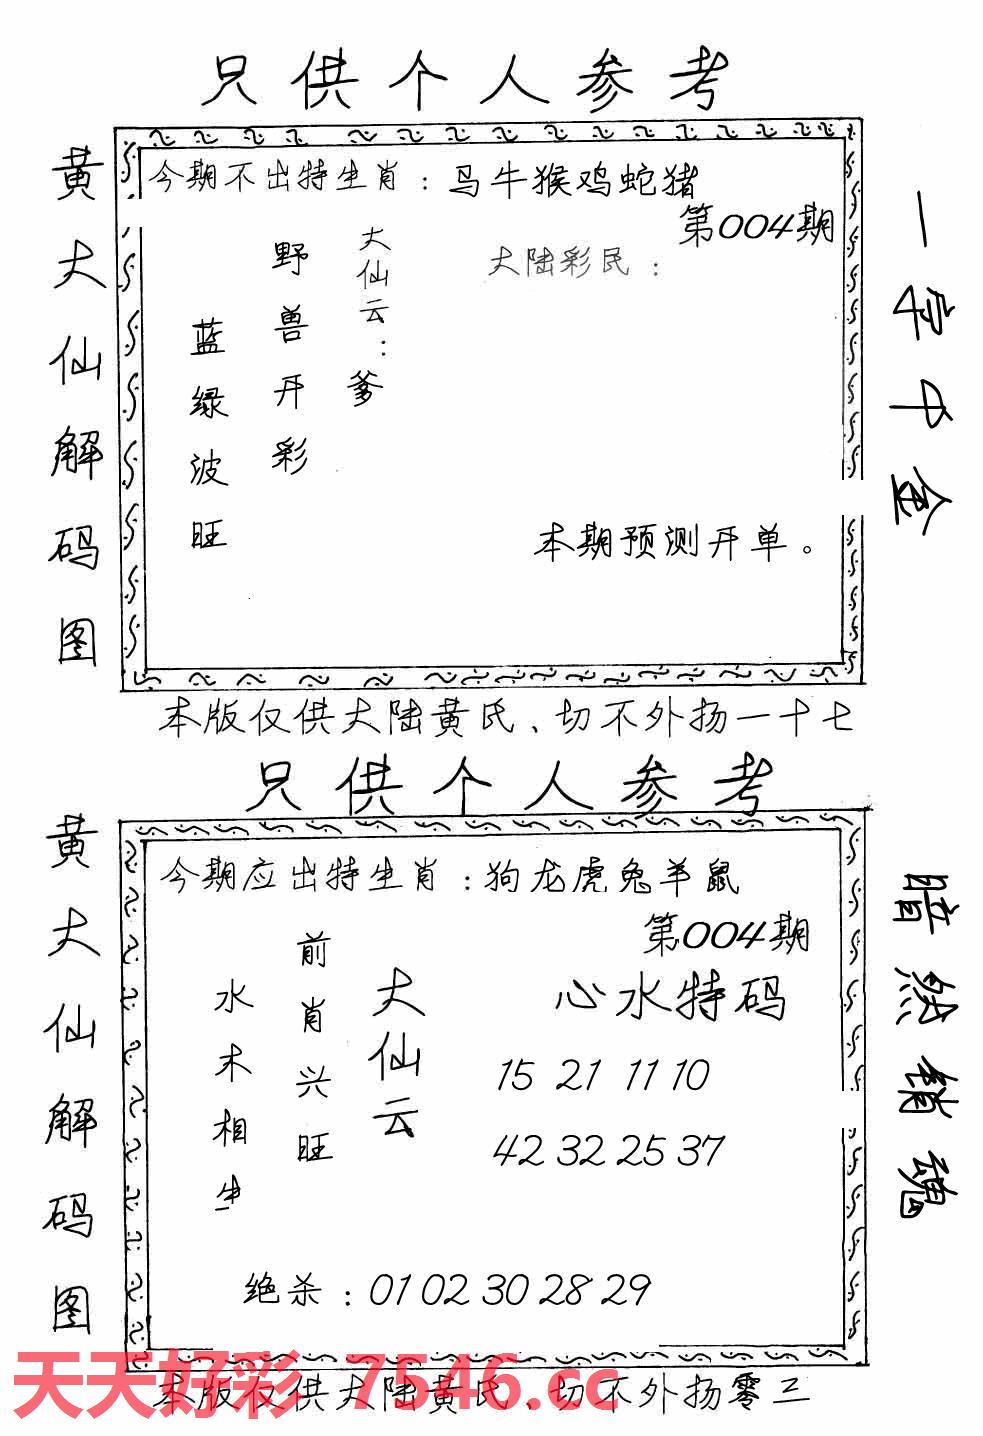 只供个人参考
黄大仙解码图
今期不出特生肖：马牛猴鸡蛇猪
第004期
大陆彩民：
大仙云：爹
野兽开彩
蓝绿波旺
本期预测开单。
一字中金
本版仅供大陆黄氏、切不外扬一十七
只供个人参考
黄大仙解码图
今期应出特生肖：狗龙虎兔羊鼠
第004期
大仙云
前肖兴旺
水木相生
心水特码
15 21 11 10
42 32 25 37
绝杀：01 02 30 28 29
暗然销魂
本版仅供大陆黄氏、切不外扬零三
天天好彩 7546.cc